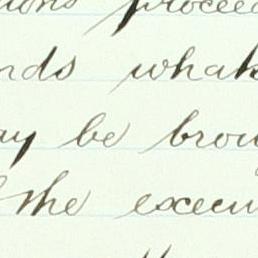 ions proceed
nds what
ay be brou
the execu